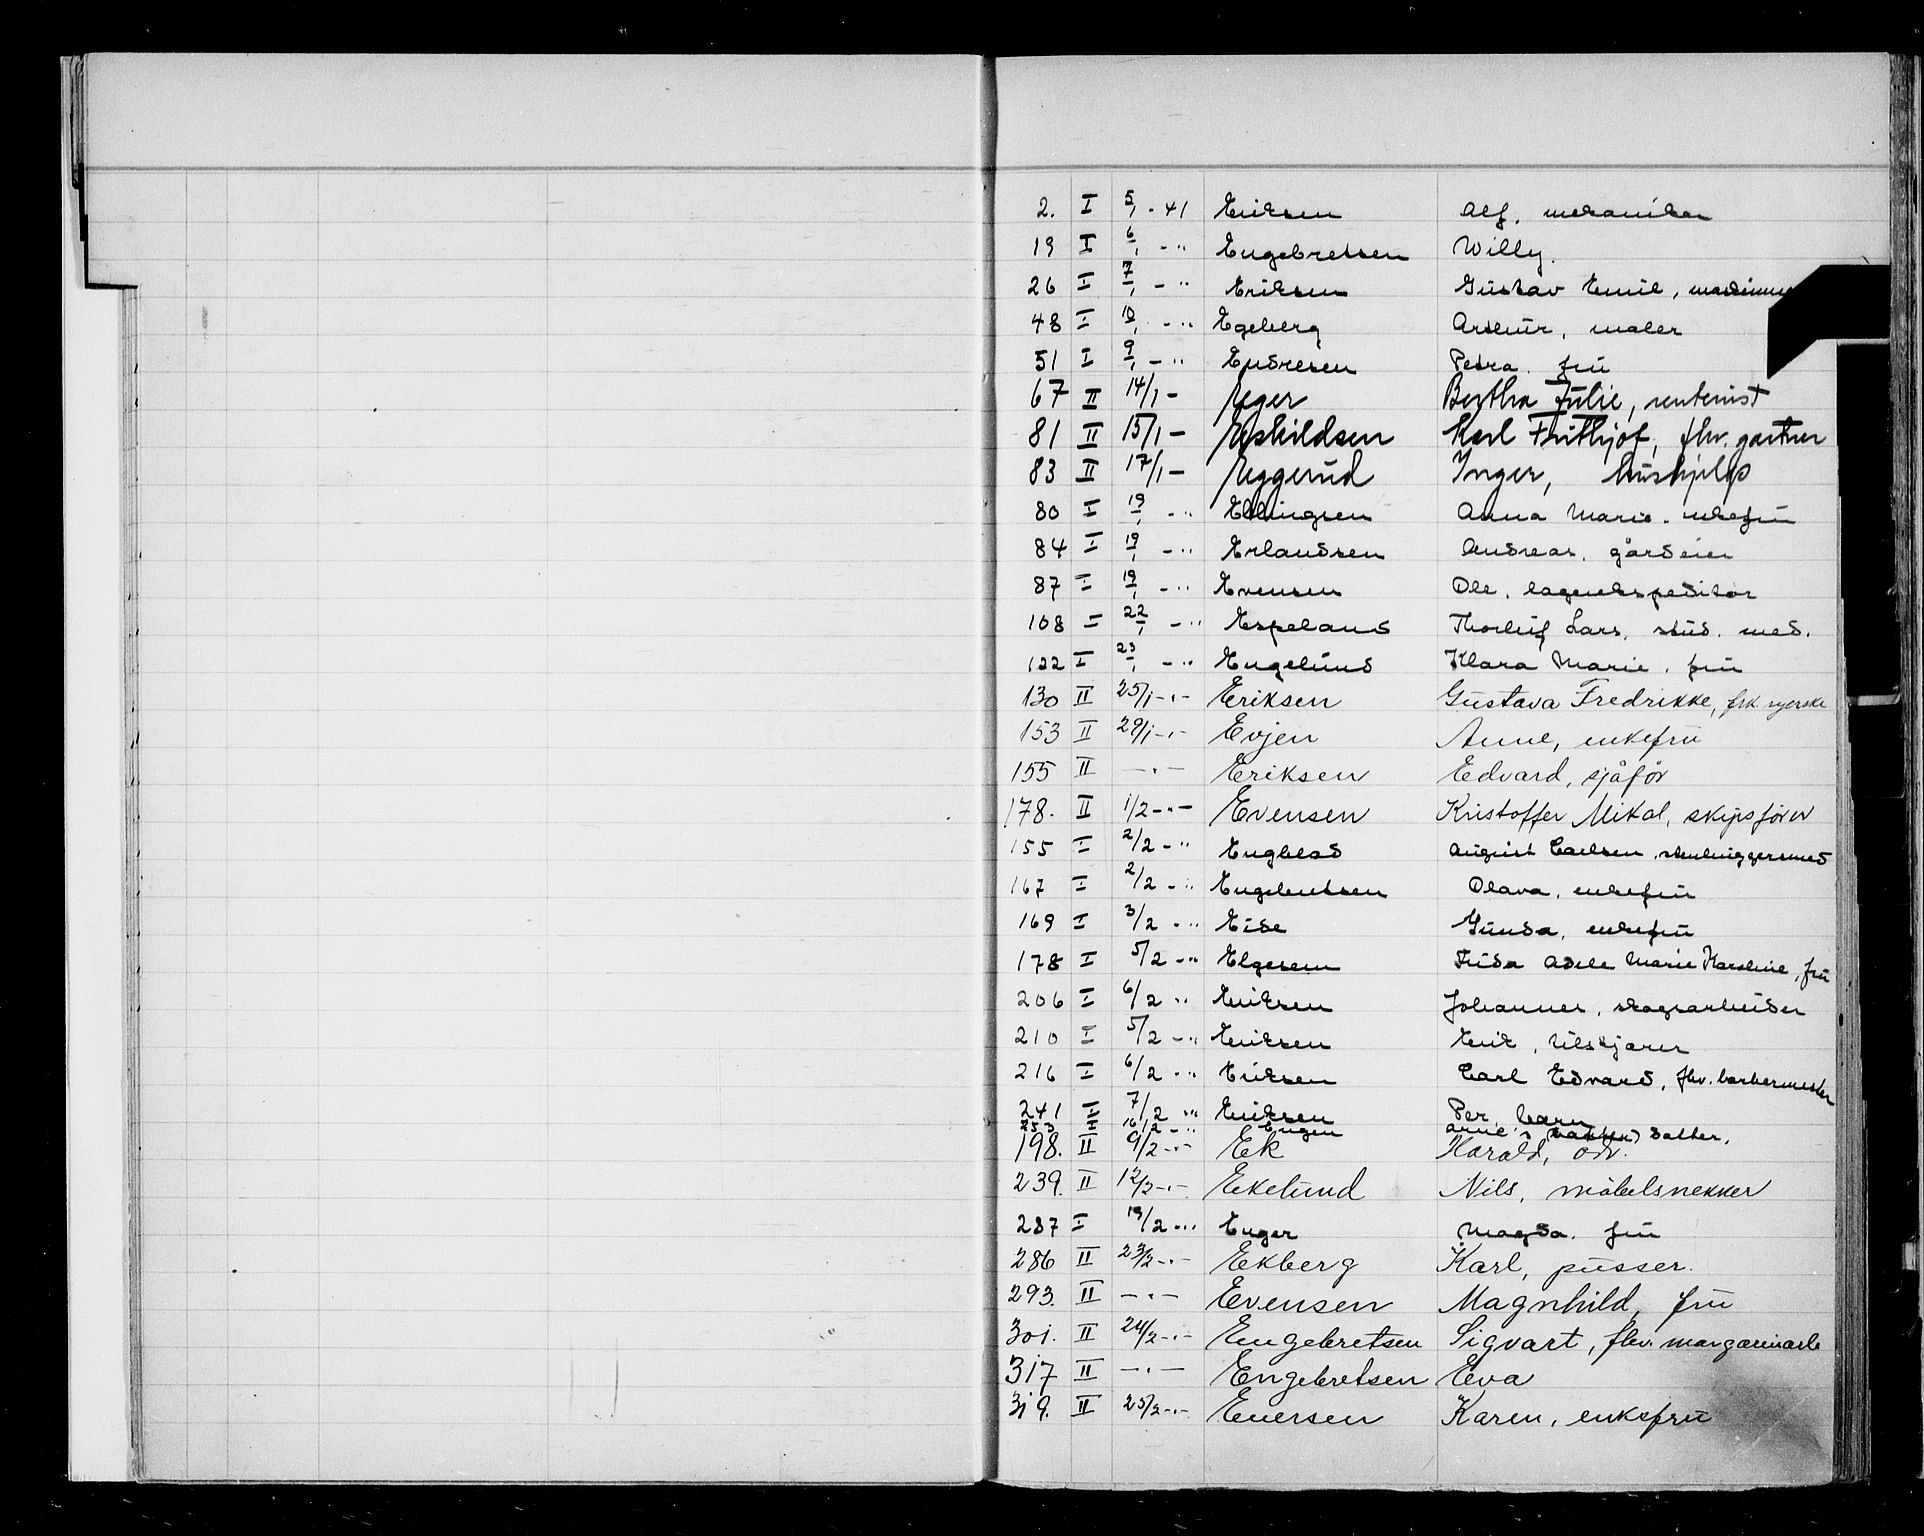 2. I 5/1 - 41 Eriksen Alf. mekaniker
19 I 6/1 - " Engebretsen Willy.
26 I 7/1 - " Eriksen Gustav Emil,
48 I 10/1 - " Egeberg Arthur, maler
51 I 9/1 - " Endresen Petra. fru
67 II 14/1 - Eger Bertha Julie, rentenist
81 II 15/1 - Eskildsen Karl Frithjof, fhv. gartner
83 II 17/1 - Eggerud Inger, hushjelp
80 I 19/1 - " Ellingsen Anna Marie. enkefru
84 I 19/1 - " Erlandsen Andreas. gårdeier
87 I 19/1 - " Evensen Ole. lagerekspeditør
108 I 22/1 - " Espeland Thorleif Lars. stud. med.
122 I 23/1 - " Engelund Klara Marie. fru
130 II 25/1 - " - Eriksen Gustava Fredrikke, frk syerske
153 II 29/1 - " - Evjen Anne, enkefru
155 II - " - Eriksen Edvard, sjåfør
178. II 1/2 - " - Evensen Kristoffer Mikal, skipsfører
155 I 2/2 - " Engblad August Carlsen,
167 I 2/2 - " Engebretsen Olava. enkefru
169 I 3/2 - " Eide Gunda. enkefru
178 I 5/2 - " Elgesem Frida Adele Marie Karoline, fru
206 I 6/2 " Eriksen Johannes. skogsarbeider
210 I 5/2 - " Eriksen Erik, tilskjærer
216 I 6/2 - " Eriksen Carl Edvard, fhv. barbermester
241 I 7/2 " Eriksen Per. barn
253 I 16/2 - " Engen Arne, (Bakken) Salter.
198. II 9/2 - " - Ek Harald, adv.
239. II 12/2 - " - Ekelund Nils, møbelsnekker
287 I 19/2 - " Enger Magda. fru
286 II 23/2 - " - Ekberg Karl, pusser.
293. II - " - Evensen Magnhild, fru
301. II 24/2 - " - Engebretsen Sigvart, fhv. margarinarb
317 II - " - Engebretsen Eva
319. II 25/2 - " - Enersen Karen, enkefru